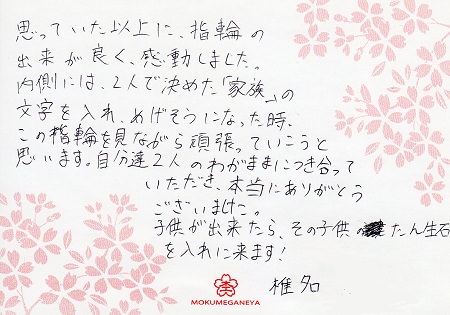 思っていた以上に、指輪の
出来が良く、感動しました。
内側には、2人で決めた「家族」の
文字を入れ、めげそうになった時、
この指輪を見ながら頑張っていこうと
思います。自分達2人のわがままにつき合って
いただき、本当にありがとう
ございました。
子供が出来たら、その子供のたん生石
を入れに来ます!
椎名
MOKUMEGANEYA